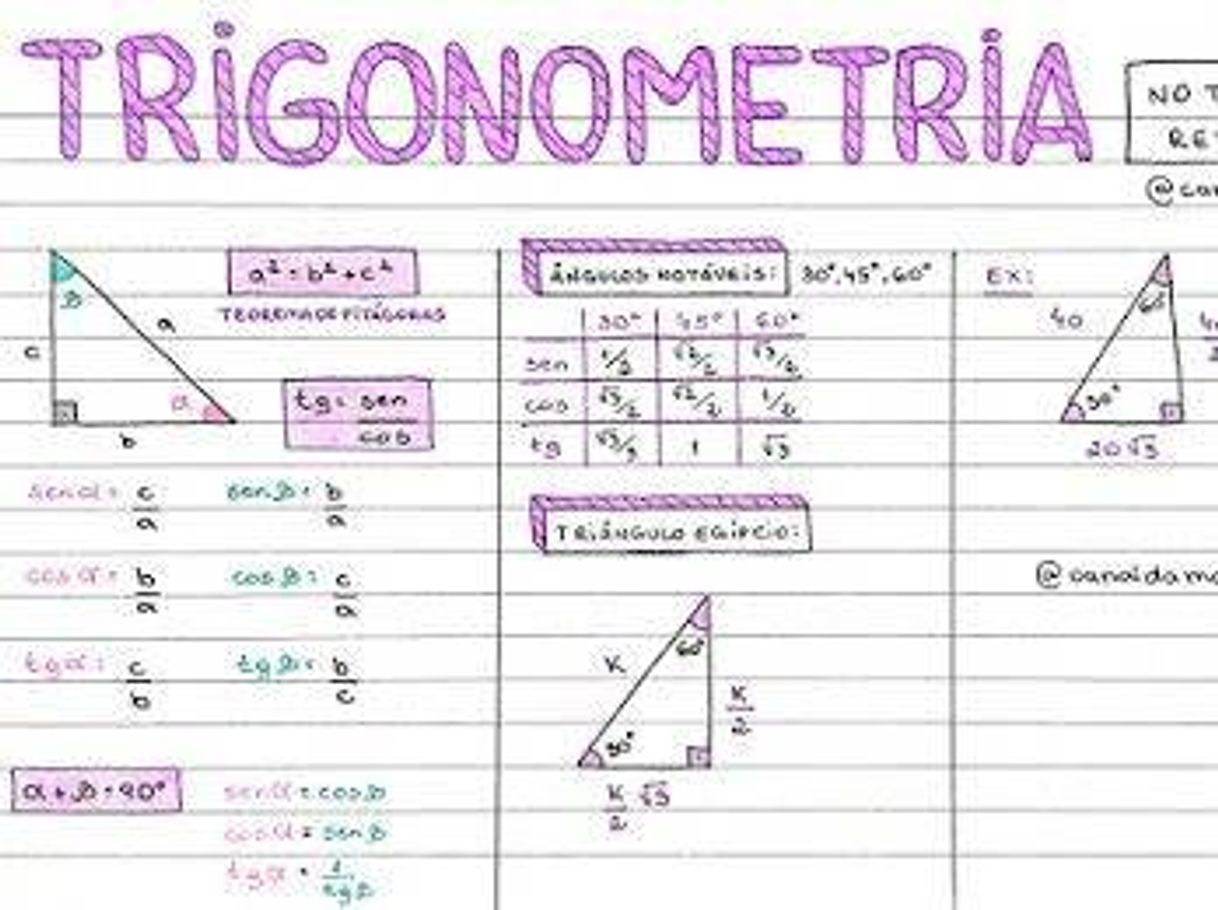 TRIGONOMETRIA
NO T
RET
@can
β
a
c
α
b
a² = b² + c²
TEOREMA DE PITÁGORAS
tg = sen
cos
sen α = c/a
sen β = b/a
cos α = b/a
cos β = c/a
tg α = c/b
tg β = b/c
α + β = 90°
sen α = cos β
cos α = sen β
tg α = 1/tg β
ÂNGULOS NOTÁVEIS: 30°, 45°, 60°
30° 45° 60°
sen 1/2 √2/2 √3/2
cos √3/2 √2/2 1/2
tg √3/3 1 √3
TRIÂNGULO EGÍPCIO:
60°
K
K/2
30°
K/2 √3
EX:
60°
40
30°
20√3
@canaldamo